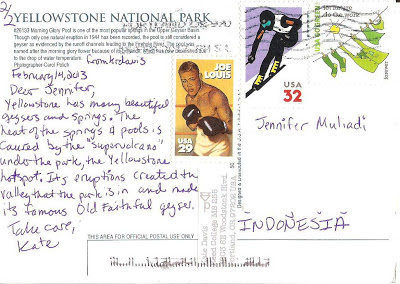 2/2
YELLOWSTONE NATIONAL PARK
Morning Glory Pool is one of the most popular springs in the Upper Geyser Basin.
Though only one natural eruption in 1944 has been recorded, the pool is still considered a
geyser as evidenced by the runoff channels leading to the Firehole River. The pool was
named after the morning glory flower because of its
to the drop of water temperature.
Photographer Carol Polich
from krdavis
February 14, 2013
Dear Jennifer,
Yellowstone has many beautiful
geysers and springs. The
heat of the springs & pools is
caused by the "supervolcano"
under the park, the Yellowstone
hotspot. Its eruptions created the
valley that the park is in and made
its famous Old Faithful geyser.
Take care,
Kate
THIS AREA FOR OFFICIAL POSTAL USE ONLY
JOE
LOUIS
USA
29
USA
32
do the work
Jennifer Muliadi
INDONESIA
Davis
Reed College MS
Woodstock Blvd.
Portland, OR 97202 USA